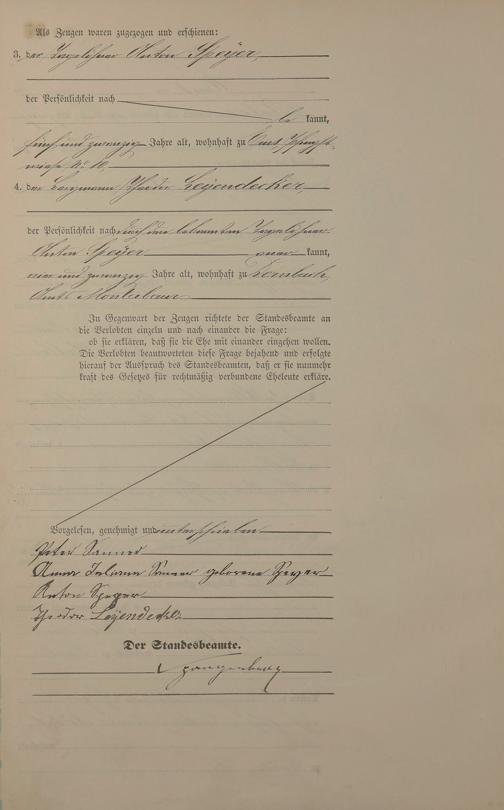 Als Zeugen waren zugezogen und erschienen:
3. der Tagelöhner Anton Speyer,
der Persönlichkeit nach
be kannt,
fünf und zwanzig Jahre alt, wohnhaft zu Ems,
4. der Bergmann Theodor Leyendecker,
der Persönlichkeit nach durch den bekannten Tagelöhner
Anton Speyer aner kannt,
und zwanzig Jahre alt, wohnhaft zu
Amts Montabaur
In Gegenwart der Zeugen richtete der Standesbeamte an
die Verlobten einzeln und nach einander die Frage:
ob sie erklären, daß sie die Ehe mit einander eingehen wollen.
Die Verlobten beantworteten diese Frage bejahend und erfolgte
hierauf der Ausspruch des Standesbeamten, daß er sie nunmehr
kraft des Gesetzes für rechtmäßig verbundene Eheleute erkläre.
Vorgelesen, genehmigt und unterschrieben
Peter
Anna Juliana geborene Speyer
Anton Speyer
Theodor Leyendecker
Der Standesbeamte.
Spangenberg